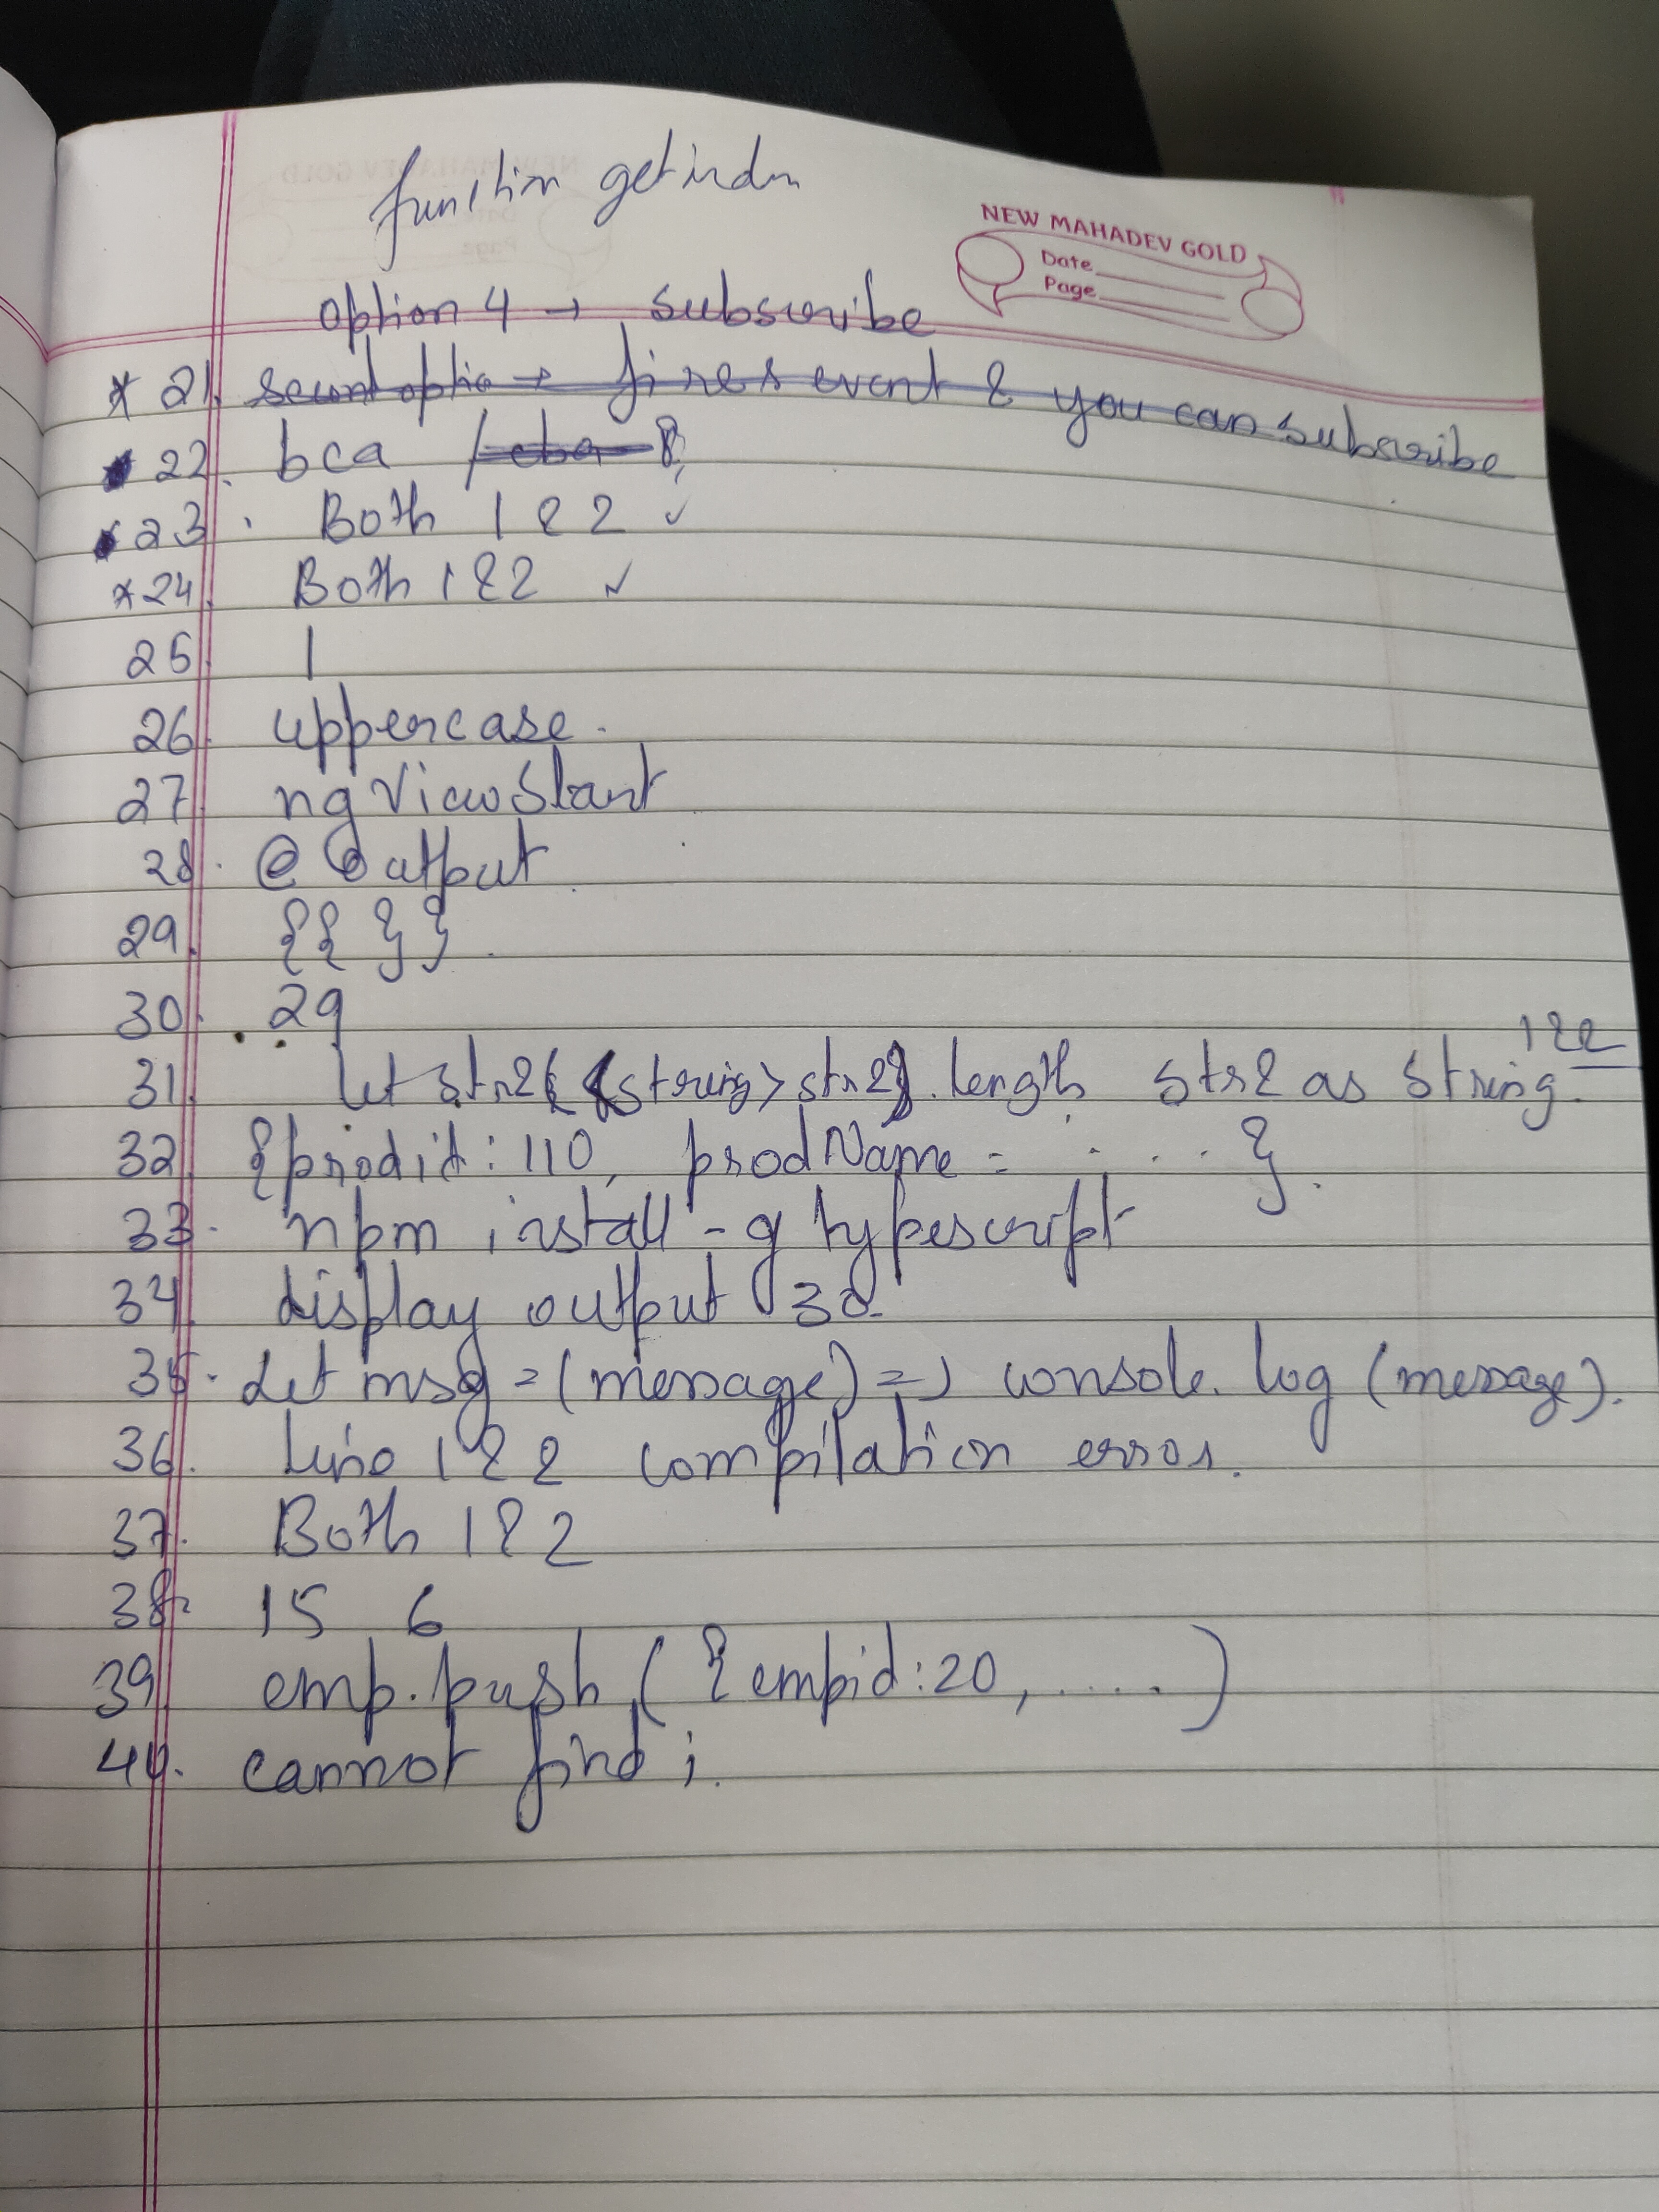 function getindn
NEW MAHADEV GOLD
Date
Page
option 4 → subscribe
* 21. second optio → fires event & you can subscribe
22. bca / cba
23. Both 1 & 2 ✓
* 24. Both 1 & 2 ✓
25. 1
26. uppercase.
27. ng View Start
28. @ Output
29. {{ }}.
30. 29
1 & 2
31. let str2 (<string> str2). length str2 as string.
32. {prodid: 110, prodName = . . . . }.
33. npm install -g typescript
34. display output 30
35. Let msg = (message) => console.log (message).
36. Line 1 & 2 compilation error.
37. Both 1 & 2
38. 15 6
39. emp.push ({empid: 20, ..... )
40. cannot find i.